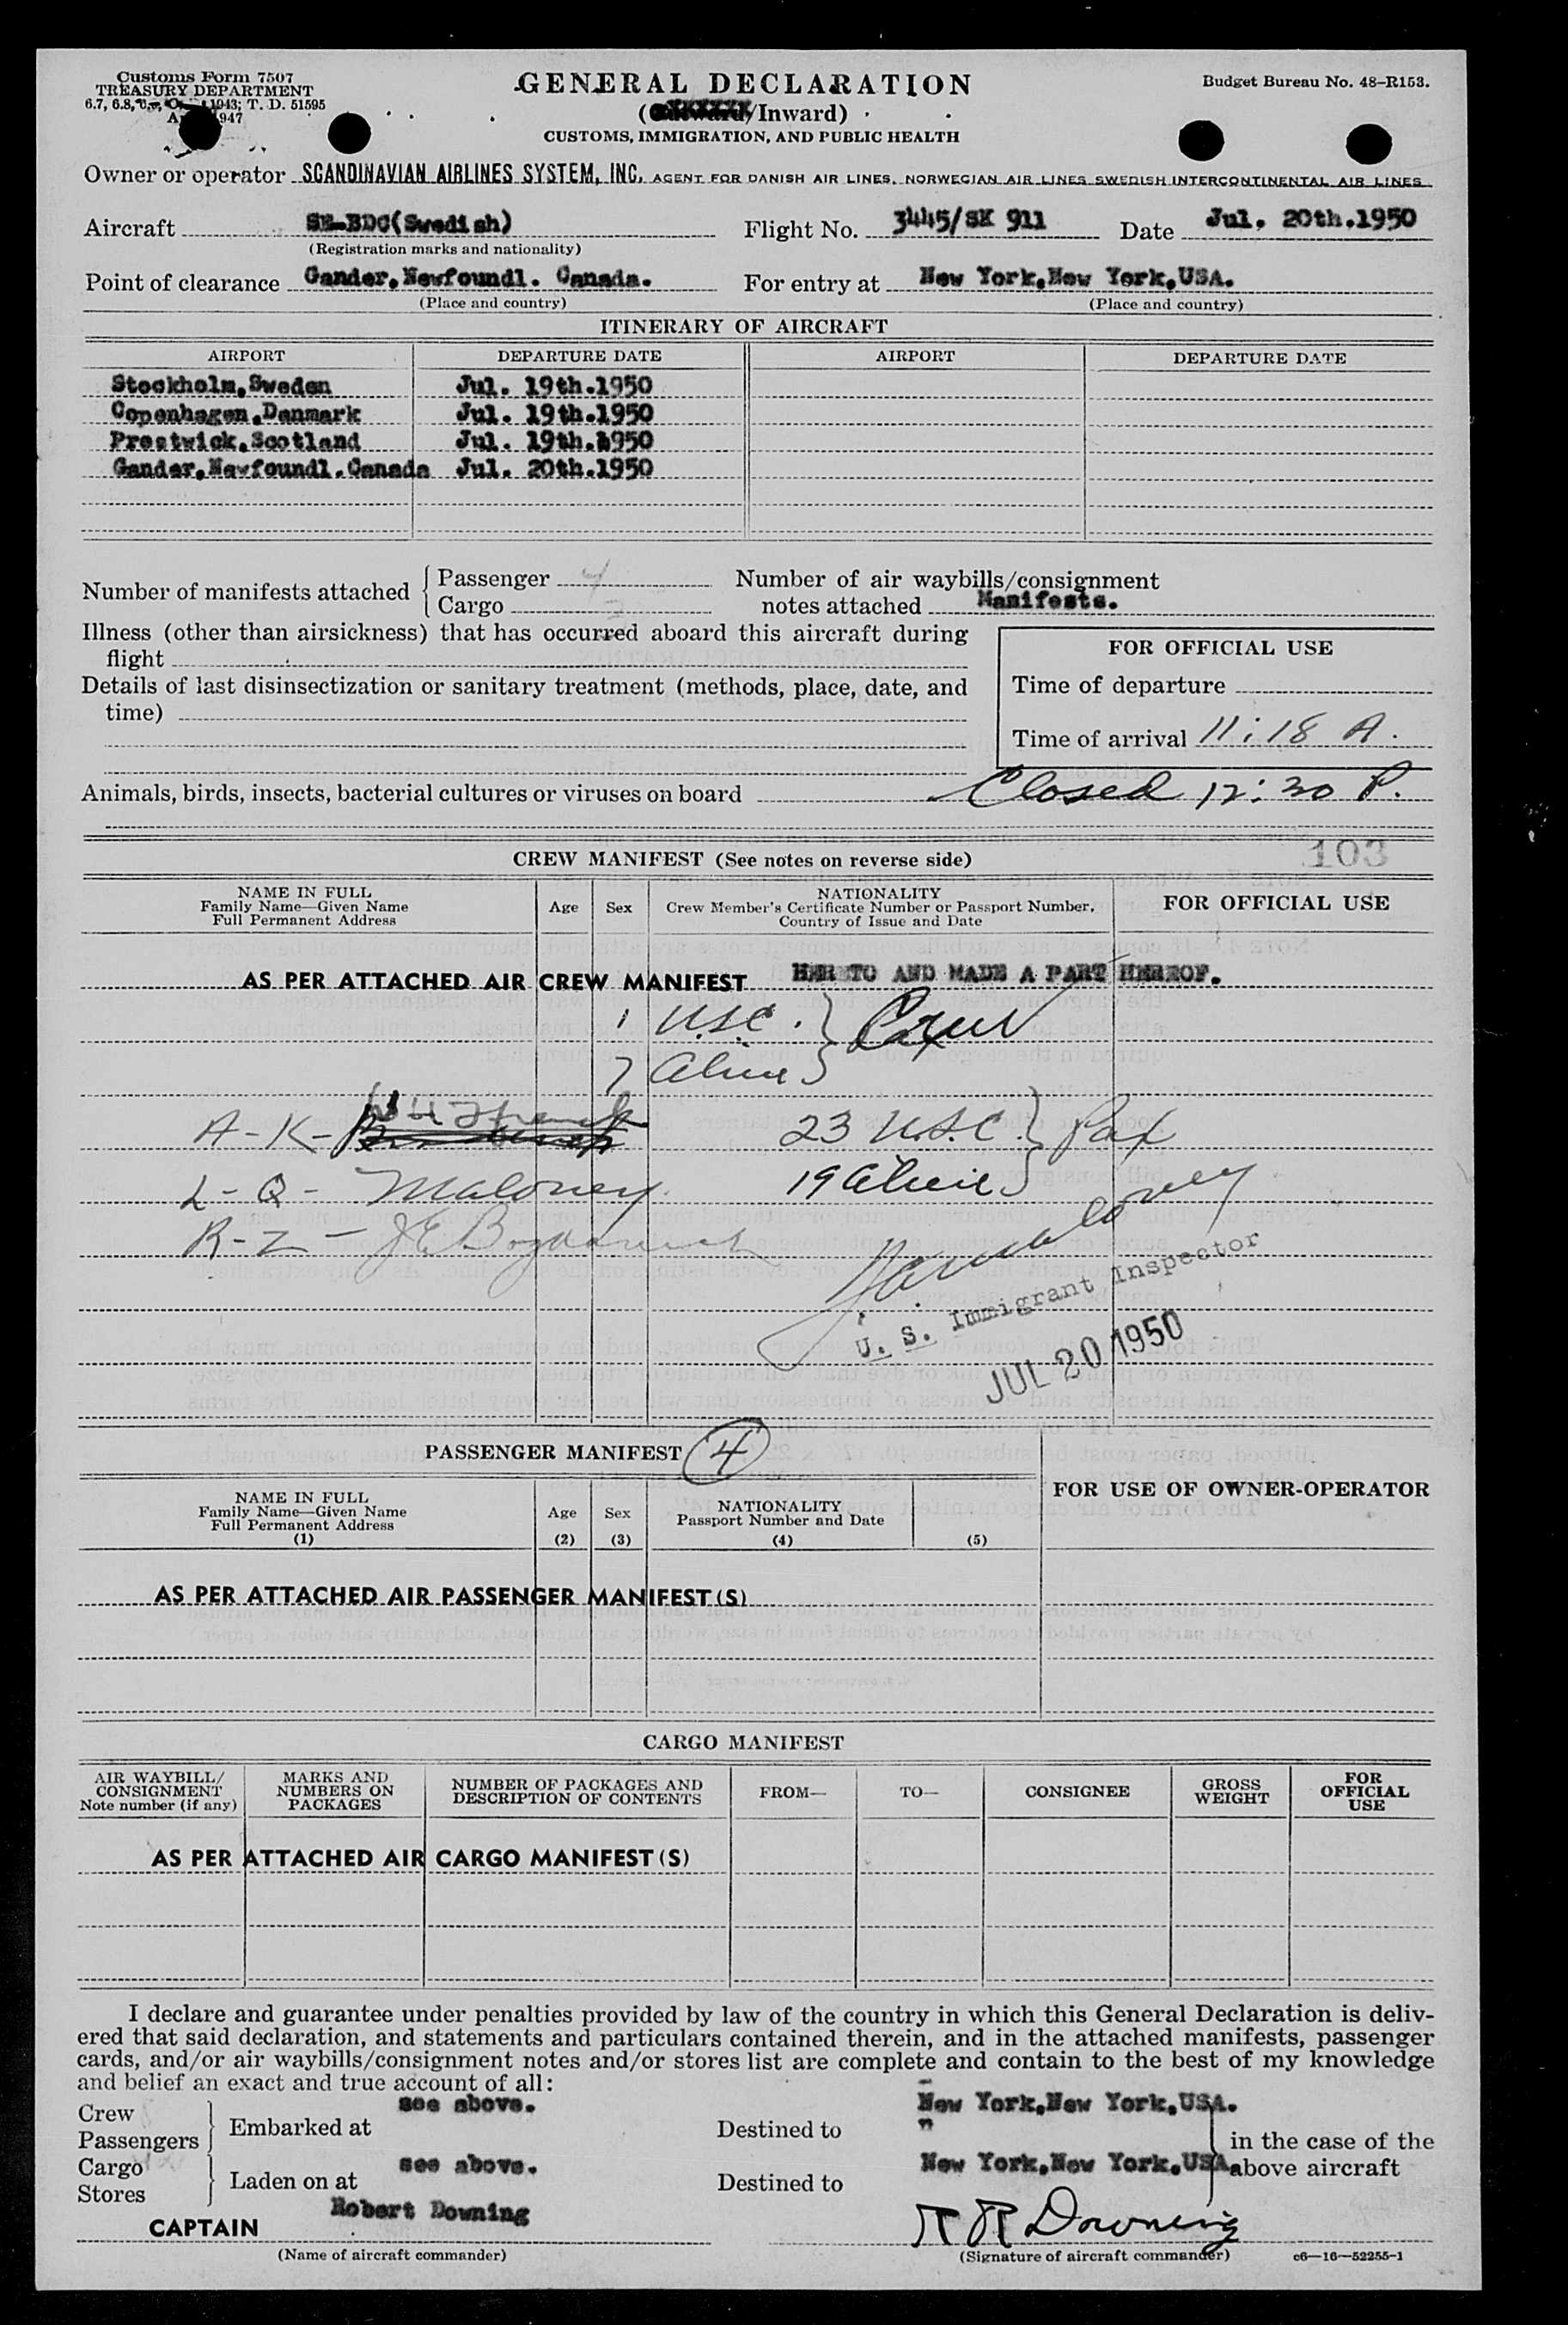 Customs Form 7507
TREASURY DEPARTMENT
1943; T. D. 51595
947
GENERAL DECLARATION
/Inward)
CUSTOMS, IMMIGRATION, AND PUBLIC HEALTH
Budget Bureau No. 48–R153.
Owner or operator SCANDINAVIAN AIRLINES SYSTEM, INC. AGENT FOR DANISH AIR LINES, NORWEGIAN AIR LINES SWEDISH INTERCONTINENTAL AIR LINES
Aircraft SE-BDC(Swedish) Flight No. 3445/SK 911 Date Jul. 20th.1950
(Registration marks and nationality)
Point of clearance Gander,Newfoundl. Canada. For entry at New York,New York,USA.
(Place and country) (Place and country)
ITINERARY OF AIRCRAFT
AIRPORT DEPARTURE DATE AIRPORT DEPARTURE DATE
Stockholm,Sweden Jul. 19th.1950
Copenhagen,Denmark Jul. 19th.1950
Prestwick,Scotland Jul. 19th.1950
Gander,Newfoundl.Canada Jul. 20th.1950
Number of manifests attached { Passenger 4 Number of air waybills/consignment
Cargo notes attached Manifests.
Illness (other than airsickness) that has occurred aboard this aircraft during
flight
Details of last disinsectization or sanitary treatment (methods, place, date, and
time)
FOR OFFICIAL USE
Time of departure
Time of arrival 11:18 A.
Animals, birds, insects, bacterial cultures or viruses on board Closed 12:30 P.
103
CREW MANIFEST (See notes on reverse side)
NAME IN FULL
Family Name—Given Name
Full Permanent Address
Age Sex
NATIONALITY
Crew Member's Certificate Number or Passport Number,
Country of Issue and Date
FOR OFFICIAL USE
AS PER ATTACHED AIR CREW MANIFEST HERETO AND MADE A PART HEREOF.
1 U.S.C. } Crew
7 Alien
A-K- 23 U.S.C. } Pax
L-Q- Maloney 19 Alien
R-Z-
U. S. Immigrant Inspector
JUL 20 1950
PASSENGER MANIFEST 4
NAME IN FULL
Family Name—Given Name
Full Permanent Address
(1)
Age
(2)
Sex
(3)
NATIONALITY
Passport Number and Date
(4) (5)
FOR USE OF OWNER-OPERATOR
AS PER ATTACHED AIR PASSENGER MANIFEST(S)
CARGO MANIFEST
AIR WAYBILL/
CONSIGNMENT
Note number (if any)
MARKS AND
NUMBERS ON
PACKAGES
NUMBER OF PACKAGES AND
DESCRIPTION OF CONTENTS
FROM— TO— CONSIGNEE
GROSS
WEIGHT
FOR
OFFICIAL
USE
AS PER ATTACHED AIR CARGO MANIFEST(S)
I declare and guarantee under penalties provided by law of the country in which this General Declaration is deliv-
ered that said declaration, and statements and particulars contained therein, and in the attached manifests, passenger
cards, and/or air waybills/consignment notes and/or stores list are complete and contain to the best of my knowledge
and belief an exact and true account of all:
Crew
Passengers } Embarked at see above. Destined to New York,New York,USA.
"
in the case of the
above aircraft
Cargo
Stores } Laden on at see above. Destined to New York,New York,USA.
CAPTAIN Robert Downing R R Downing
(Name of aircraft commander) (Signature of aircraft commander) c6—16—52255-1